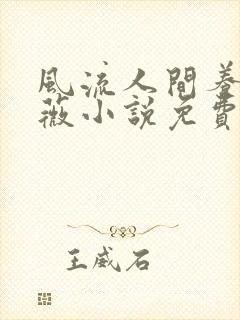 風流人間養
薇小說免費
王威石